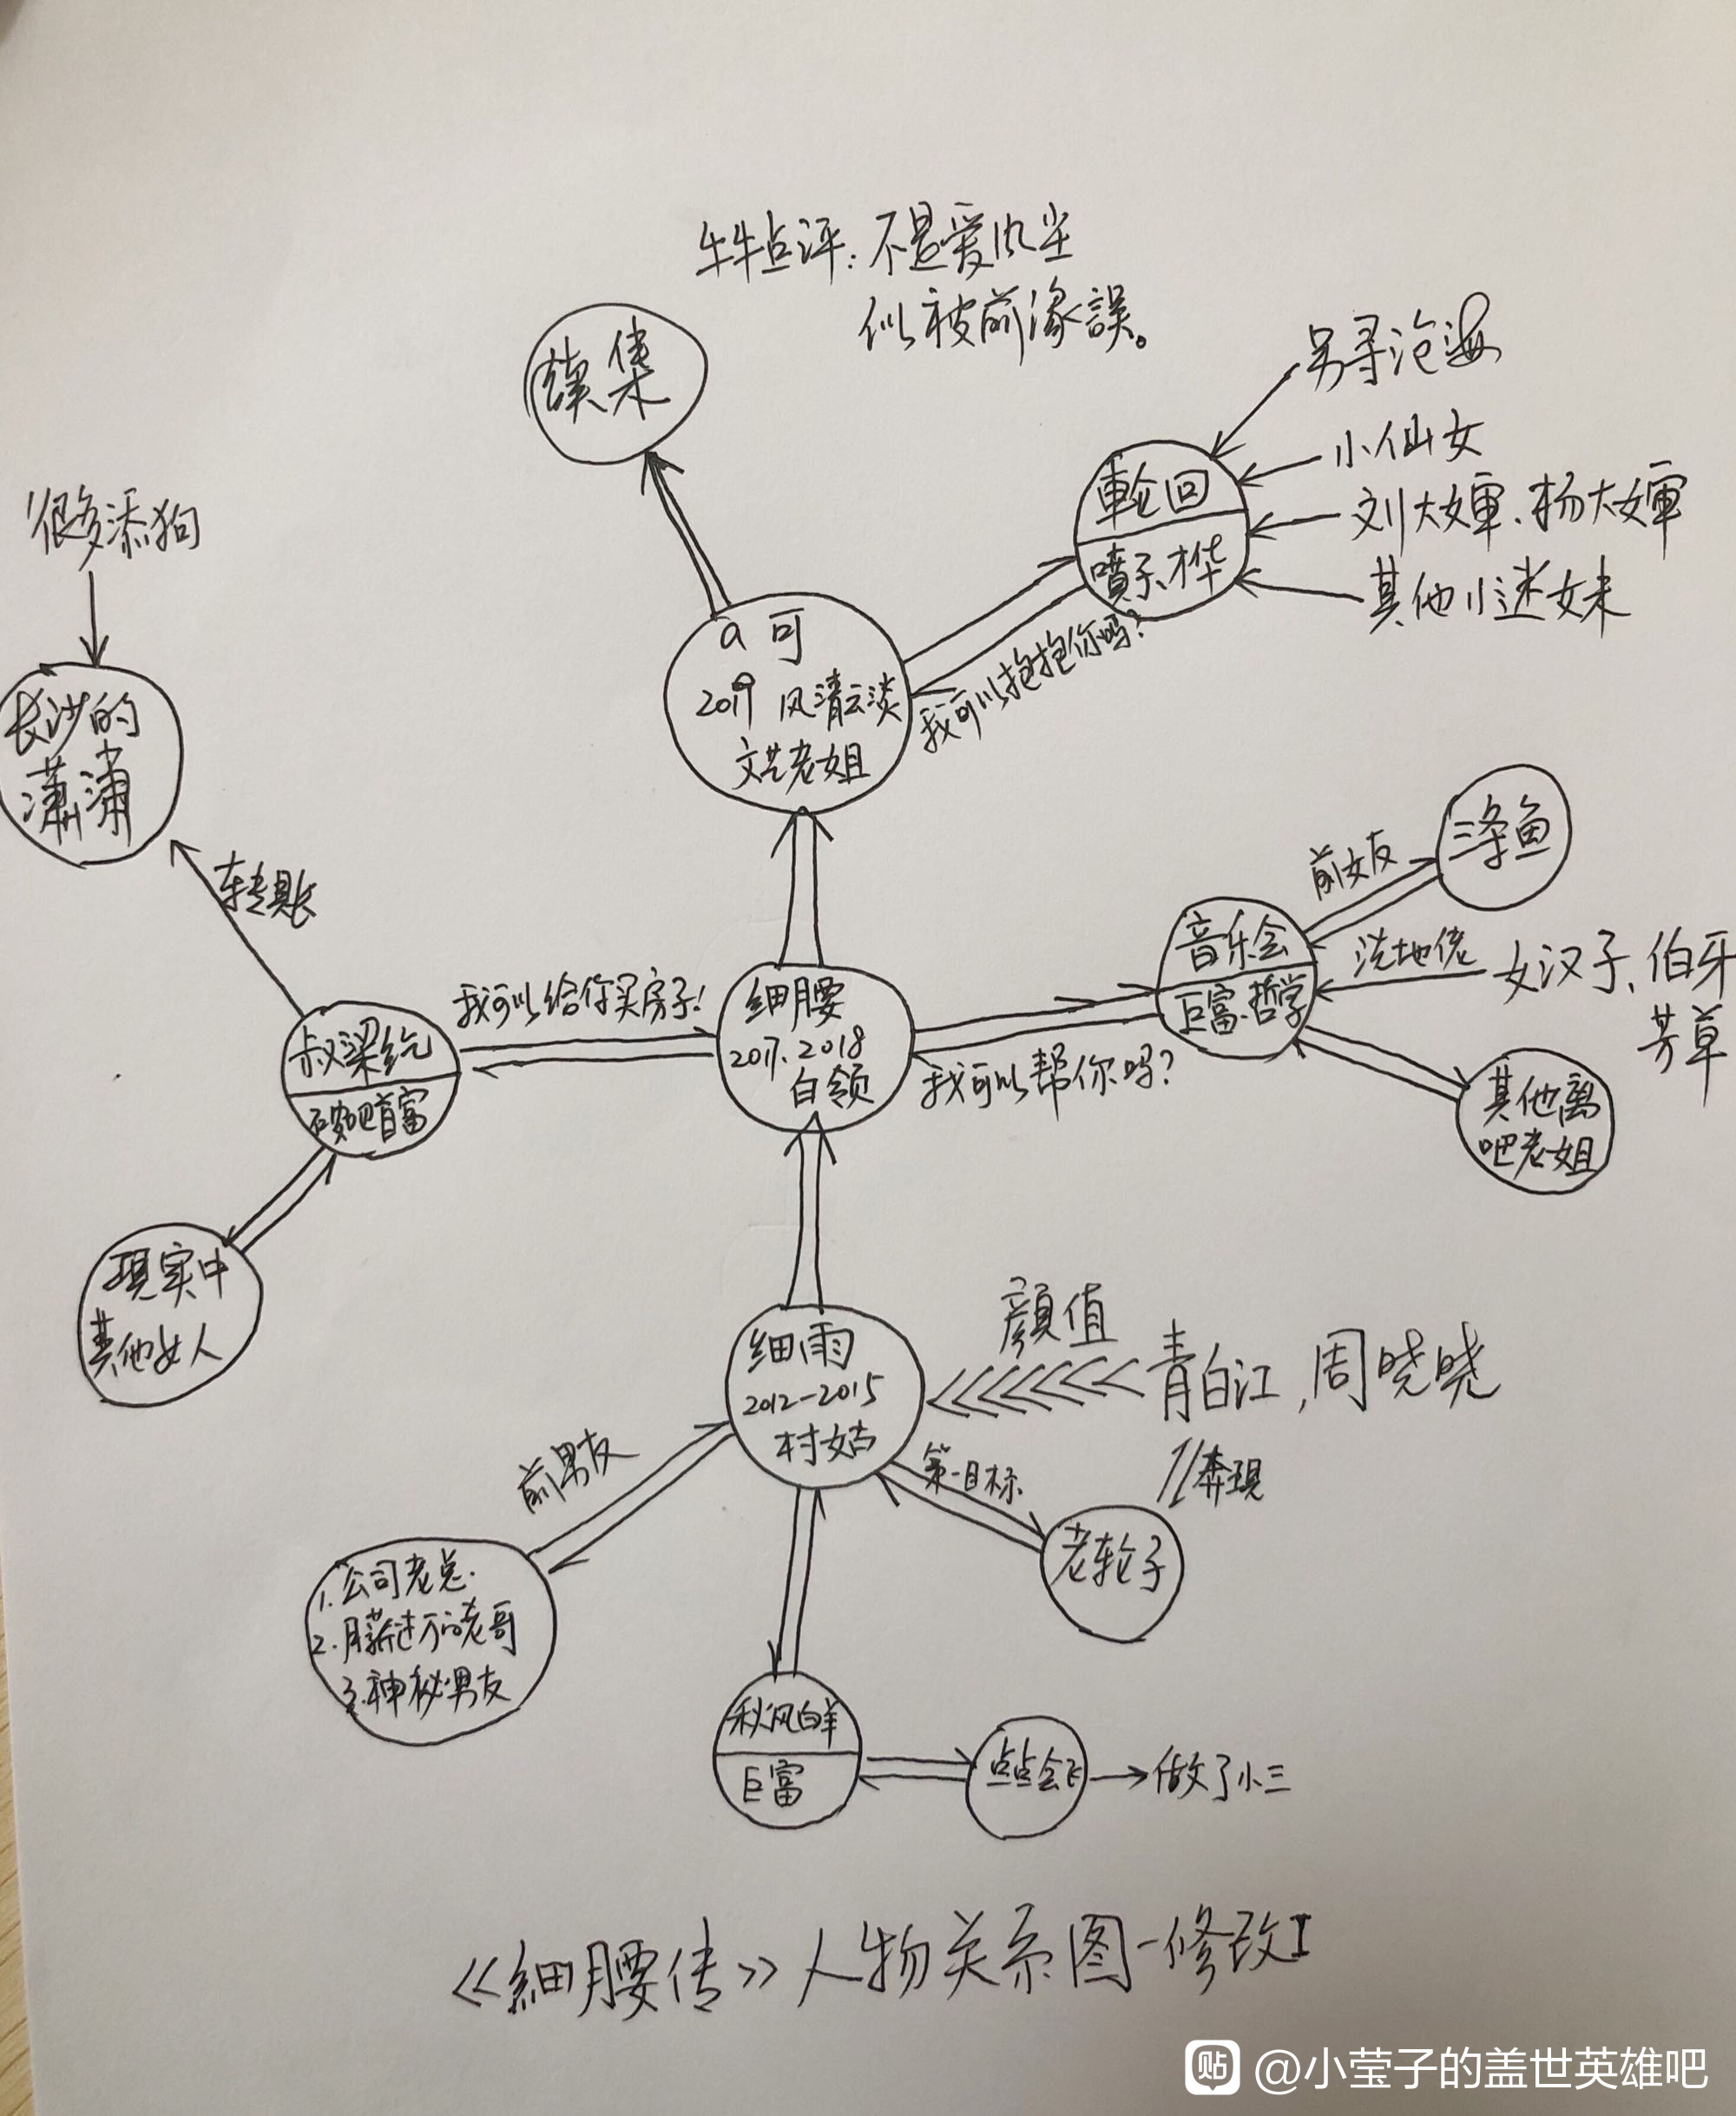 牛牛点评：不是爱风尘
似被前缘誤。
續集
另寻沧海
小仙女
刘大婶、杨大婶
其他小迷妹
輪回
噴子、才华
很多添狗
a可
2019 风清云淡
文艺老姐
我可以抱抱你吗？
长沙的
潇浦
转账
前女友
三条鱼
音乐会
巨富、哲学
洗地佬
女汉子、伯牙
芳草
我可以给你买房子！
细腰
2017、2018
白领
我可以帮你吗？
叔梁纥
吧首富
其他离
吧老姐
現実中
其他女人
细雨
2012-2015
村姑
顏值
青白江，周晓晓
奔現
前男友
第一目标
老轮子
1.公司老总.
2.月薪过万的老哥
3.神秘男友
秋风白羊
巨富
点点会飞
做了小三
《細腰传》人物关系图-修改I
贴 @小莹子的盖世英雄吧